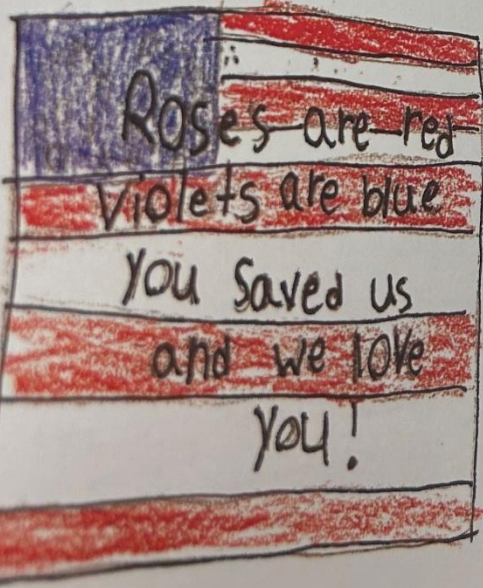 Roses are red
Violets are blue
you saved us
and we love
you!